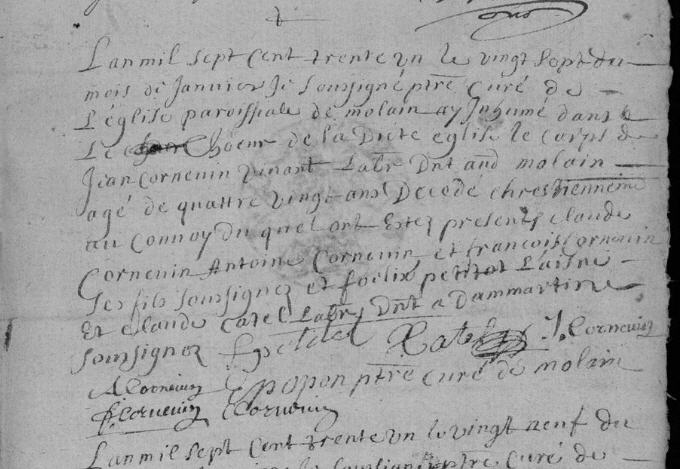 L'an mil sept cent trente un le vingt sept du
mois de Janvier Je soussigné ptre curé de
L'église paroissiale de molain ay Inhumé dans le
Le choeur de la Dicte eglise le corps de
Jean Cornevin vivant Labr Dnt aud molain
agé de quattre vingt ans Decedé chrestiennemt
au convoy du quel ont Estez presents claude
Cornevin Antoine Cornevin et francois Cornevin
ses fils soussignez et foelix petitot L'aisné
Et claude Catel Labr Dnt a Dammartin
soussignez Catel J. Cornevin
A Cornevin popon ptre curé de molain
F Cornevin C Cornevin
L'an mil sept cent trente un le vingt neuf du
soussigné ptre Curé de